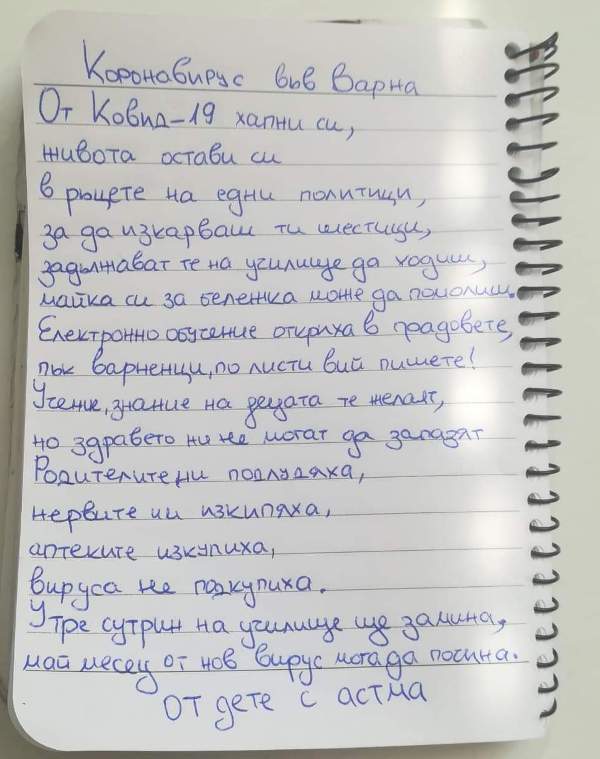 Коронавирус във Варна
От Ковид-19 хапни си,
живота остави си
в ръцете на едни политици,
за да изкарваш ти шестици,
задължават те на училище да ходиш,
майка си за бележка може да помолиш.
Електронно обучение откриха в градовете,
пък варненци, по листи вий пишете!
Учение, знание на децата те желаят,
но здравето ни не могат да запазят
Родителите ни подлудяха,
нервите им изкипяха,
аптеките изкупиха,
вируса не подкупиха.
Утре сутрин на училище ще замина,
май месец от нов вирус мога да почина.
От дете с астма